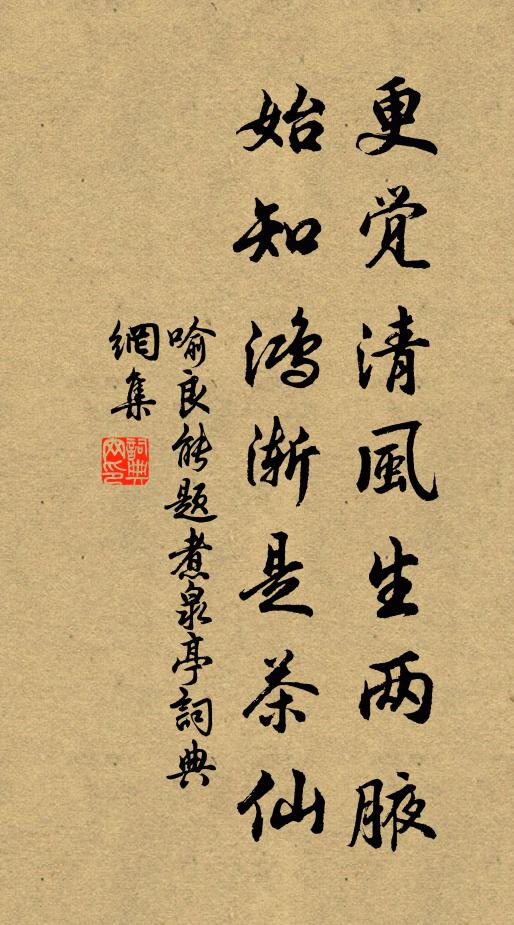 更觉清風生两腋
始知鸿渐是茶仙
喻良能題煮泉亭詞典
網集
詞典网印